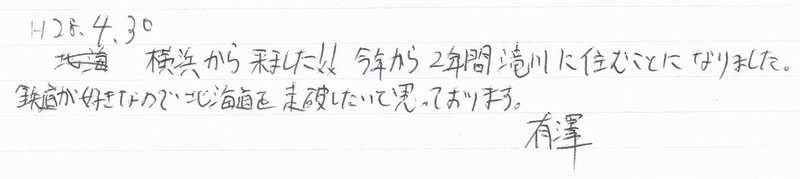 H28.4.30
北海 横浜から来ました!! 今年から2年間滝川に住むことになりました。
鉄道が好きなので北海道を走破したいと思っております。
有澤